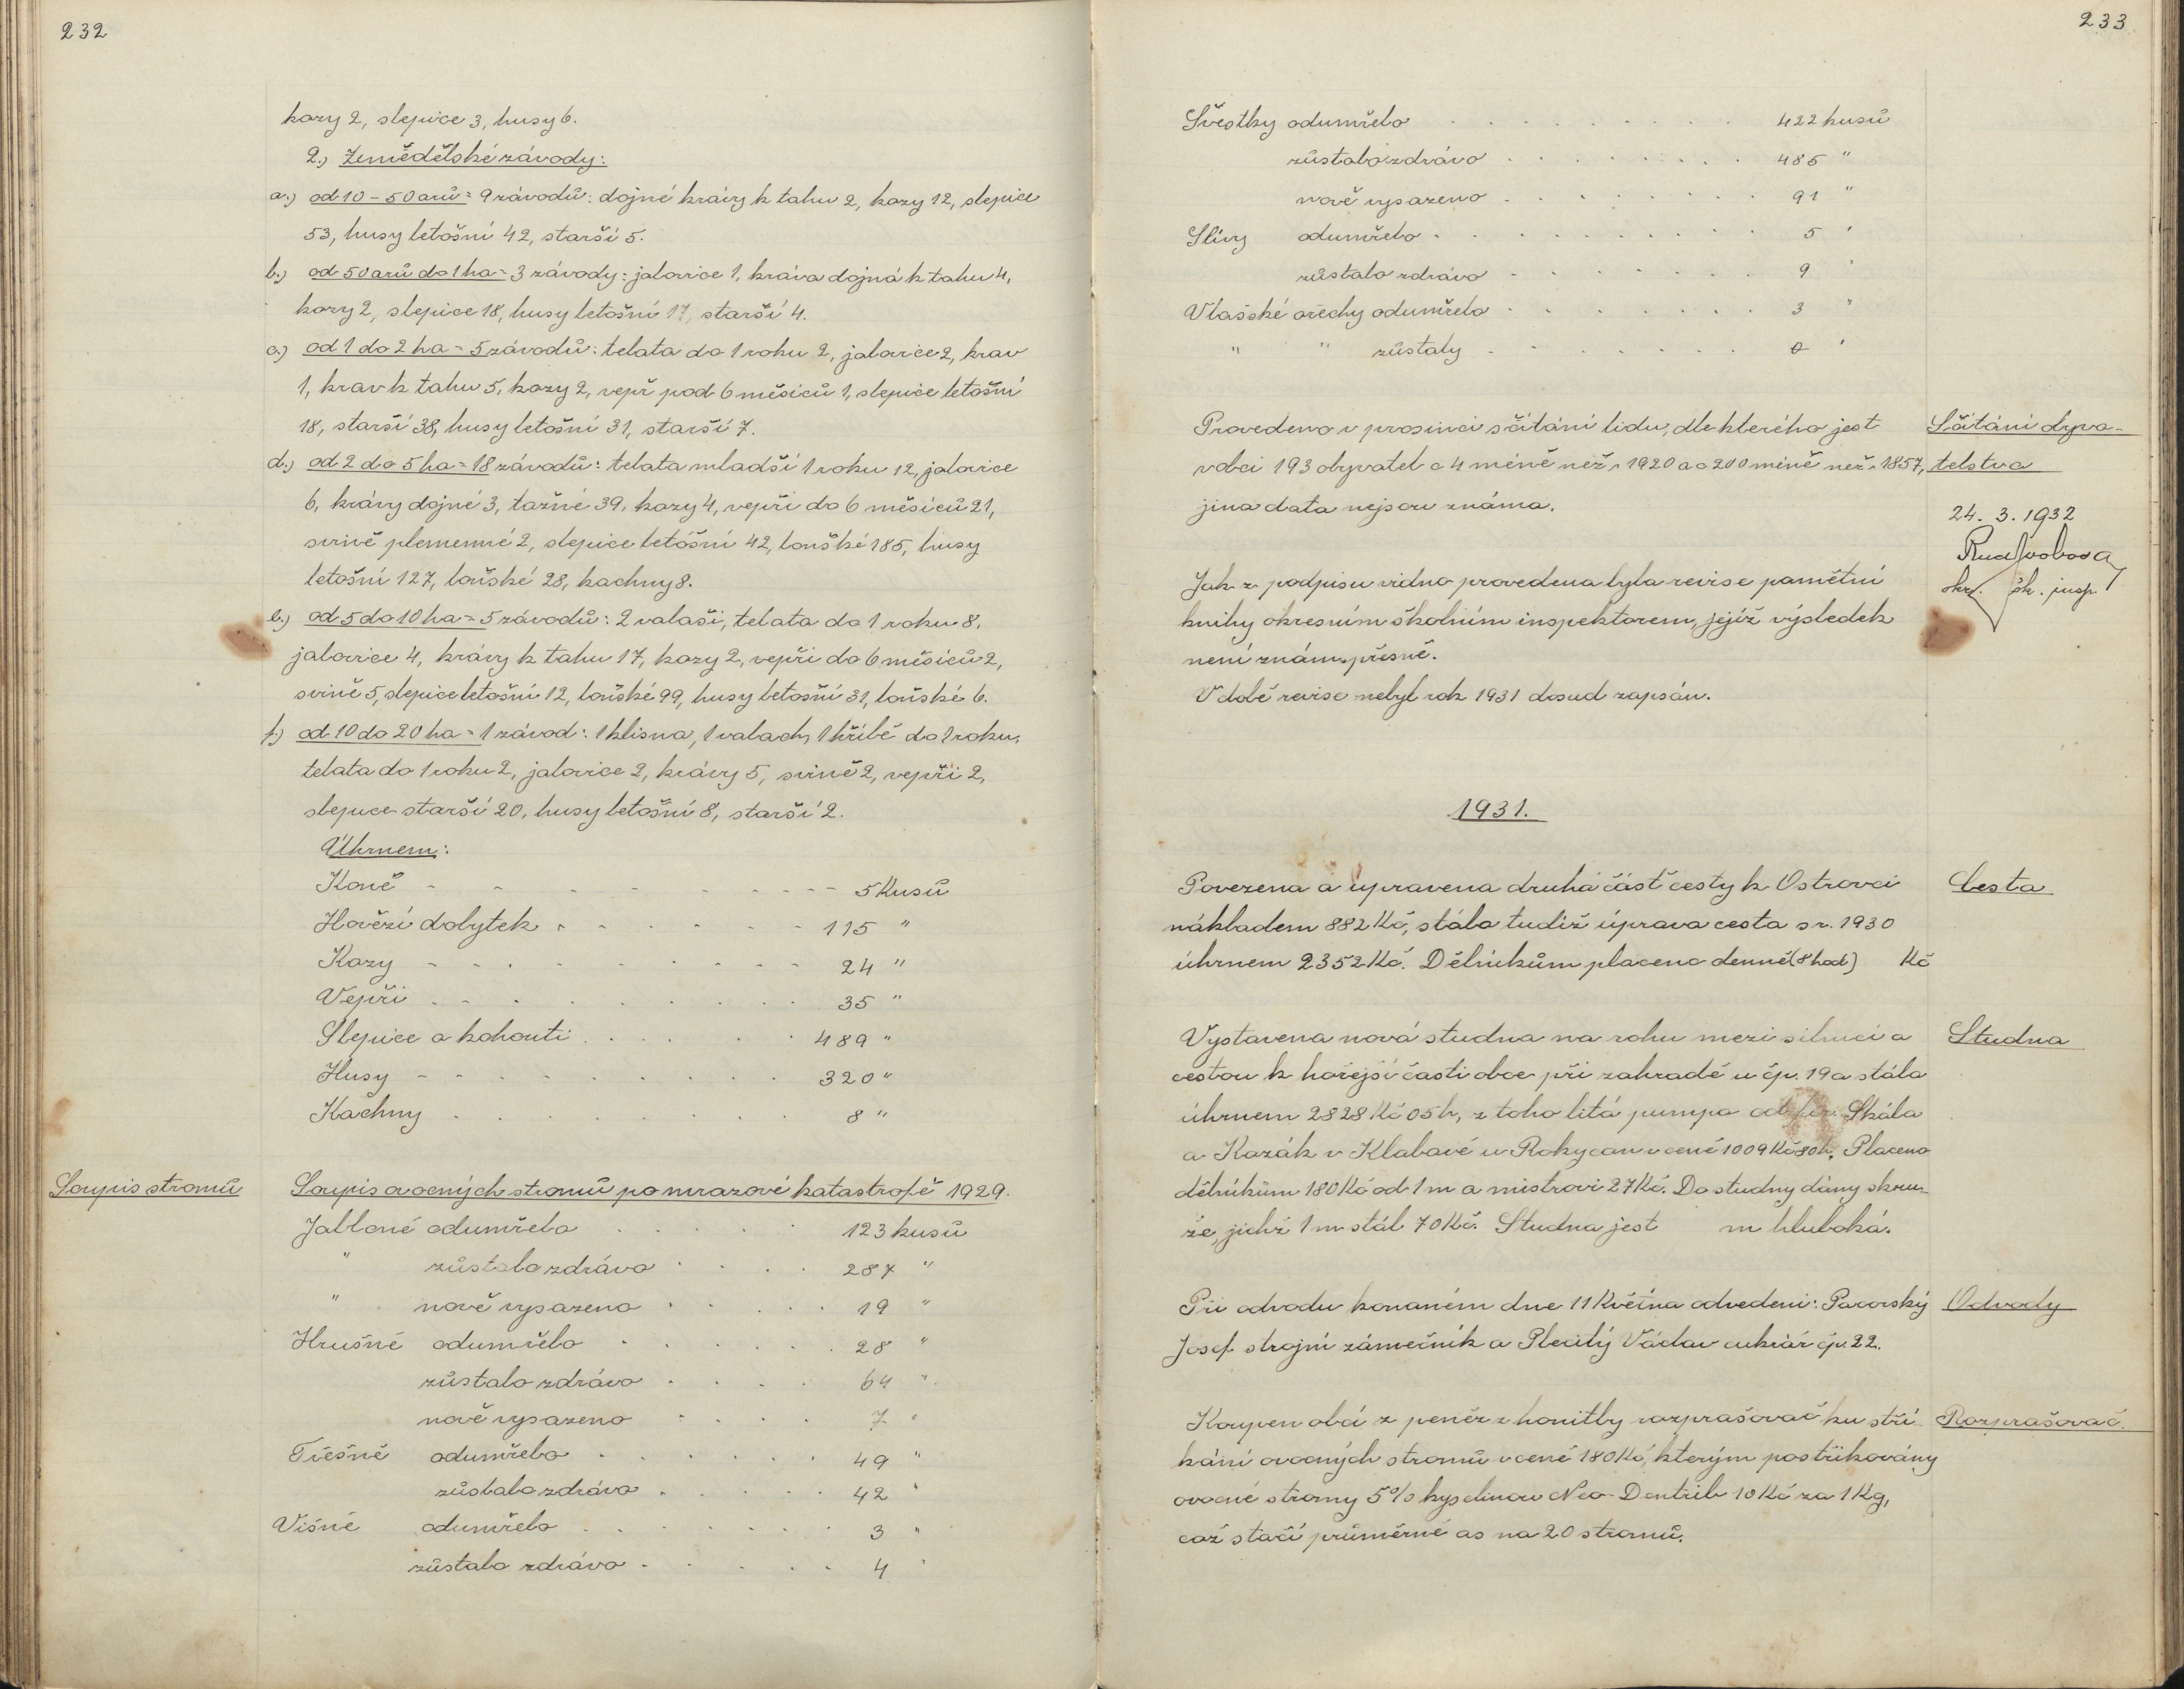 232
kozy 2, slepice 3, husy 6.
2.) Zemědělské závody:
a.) od 10 - 50 arů = 9 závodů: dojné krávy k tahu 2, kozy 12, slepice
53, husy letošní 42, starší 5.
b.) od 50 arů do 1 ha = 3 závody: jalovice 1, kráva dojná k tahu 4,
kozy 2, slepice 18, husy letošní 17, starší 4.
c.) od 1 do 2 ha = 5 závodů: telata do 1 roku 2, jalovice 2, krav
1, krav k tahu 5, kozy 2, vepř pod 6 měsíců 1, slepice letošní
18, starší 38, husy letošní 31, starší 7.
d.) od 2 do 5 ha = 18 závodů: telata mladší 1 roku 12, jalovice
6, krávy dojné 3, tažné 39, kozy 4, vepři do 6 měsíců 21,
svině plemenné 2, slepice letošní 42, loňské 185, husy
letošní 127, loňské 28, kachny 8.
e.) od 5 do 10 ha = 5 závodů: 2 valaši, telata do 1 roku 8,
jalovice 4, krávy k tahu 17, kozy 2, vepři do 6 měsíců 2,
svině 5, slepice letošní 12, loňské 99, husy letošní 31, loňské 6.
f.) od 10 do 20 ha = 1 závod: 1 klisna, 1 valach, 1 hříbě do 1 roku,
telata do 1 roku 2, jalovice 2, krávy 5, svině 2, vepři 2,
slepice starší 20, husy letošní 8, starší 2.
Úhrnem:
Koně - - - - - - - - - 5 kusů
Hovězí dobytek - - - - - - 115 "
Kozy - - - - - - - - - 24 "
Vepři . . . . . . . . . 35 "
Slepice a kohouti . . . . . 489 "
Husy - - - - - - - - 320 "
Kachny . . . . . . . . 8 "
Soupis stromů
Soupis ovocných stromů po mrazové katastrofě 1929.
Jabloně odumřelo . . . . . 123 kusů
" zůstalo zdrávo . . . . 287 "
" nově vysazeno . . . . . 19 "
Hrušně odumřelo . . . . . . 28 "
zůstalo zdrávo . . . . 64 "
nově vysazeno . . . . 7 "
Třešně odumřelo . . . . . . 49 "
zůstalo zdrávo . . . . . 42 "
Višně odumřelo . . . . . . . 3 "
zůstalo zdrávo . . . . . 4 "
233
Švestky odumřelo . . . . . . . . . 422 kusů
zůstalo zdrávo . . . . . . . . 485 "
nově vysazeno . . . . . . . 91 "
Slívy odumřelo . . . . . . . . . . 5 "
zůstalo zdrávo . . . . . . . 9 "
Vlašské ořechy odumřelo . . . . . . . 3 "
" " zůstaly . . . . . . . . 0 "
Provedeno v prosinci sčítání lidu, dle kterého jest
v obci 193 obyvatel o 4 méně než r. 1920 a o 200 méně než r. 1857,
jina data nejsou známa.
Sčítání obyva-
telstva
24. 3. 1932
Rud Svoboda
okr. šk. insp.
Jak z podpisu vidno provedena byla revise pamětní
knihy okresním školním inspektorem, jejíž výsledek
není znám přesně.
V době revise nebyl rok 1931 dosud zapsán.
1931.
Povezena a upravena druhá část cesty k Ostrovci
nákladem 882 Kč, stála tudíž úprava cesta s r. 1930
úhrnem 2352 Kč. Dělníkům placeno denně (8 hod) Kč
Cesta
Vystavena nová studna na rohu mezi silnicí a
cestou k hořejší části obce při zahradě u čp. 19 a stála
úhrnem 2828 Kč 05 h, z toho litá pumpa od fir. Skála
a Kozák v Klabavě u Rokycan v ceně 1009 Kč 80 h. Placeno
dělníkům 180 Kč od 1 m a mistrovi 27 Kč. Do studny dány skru-
že, jichž 1 m stál 70 Kč. Studna jest m hluboká.
Studna
Při odvodu konaném dne 11 Května odvedeni: Pacovský
Josef strojní zámečník a Plecitý Václav cukrář čp. 22.
Odvody
Koupen obcí z peněz z honitby rozprašovač ku stří
kání ovocných stromů v ceně 180 Kč, kterým postřikovány
ovocné stromy 5% kyselinou Neo-Dentrib 10 Kč za 1 Kg,
což stačí průměrně as na 20 stromů.
Rozprašovač.